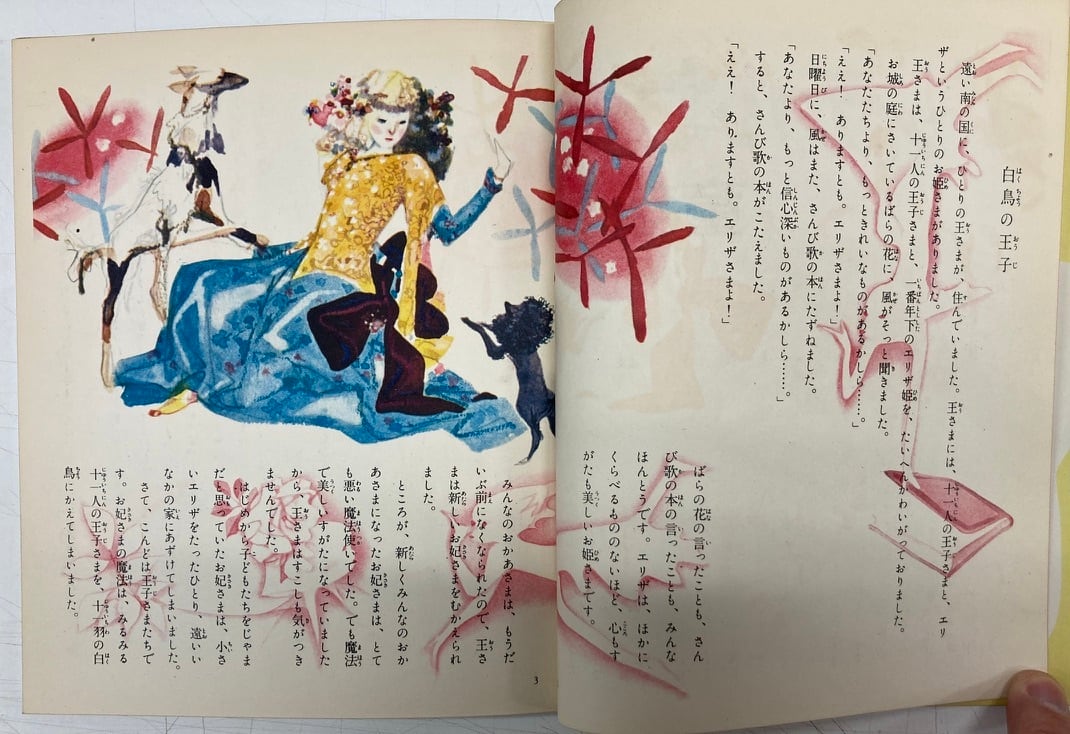 白鳥の王子
遠い南の国に、ひとりの王さまが、住んでいました。王さまには、十一人の王子さまと、エリ
ザというひとりのお姫さまがありました。
王さまは、十一人の王子さまと、一番年下のエリザ姫を、たいへんかわいがっておりました。
お城の庭にさいているばらの花に、風がそっと聞きました。
「あなたたちより、もっときれいなものがあるかしら……。」
「ええ！　ありますとも。エリザさまよ！」
日曜日に、風はまた、さんび歌の本にたずねました。
「あなたより、もっと信心深いものがあるかしら……。」
すると、さんび歌の本がこたえました。
「ええ！　ありますとも。エリザさまよ！」
ばらの花の言ったことも、さん
び歌の本の言ったことも、みんな
ほんとうです。エリザは、ほかに
くらべるもののないほど、心もす
がたも美しいお姫さまです。
みんなのおかあさまは、もうだ
いぶ前になくなられたので、王さ
まは新しいお妃さまをむかえられ
ました。
ところが、新しくみんなのおか
あさまになったお妃さまは、とて
も悪い魔法使いでした。でも魔法
で美しいすがたになっていました
から、王さまはすこしも気がつき
ませんでした。
はじめから子どもたちをじゃま
だと思っていたお妃さまは、小さ
いエリザをたったひとり、遠いい
なかの家にあずけてしまいました。
さて、こんどは王子さまたちで
す。お妃さまの魔法は、みるみる
十一人の王子さまを、十一羽の白
鳥にかえてしまいました。
3